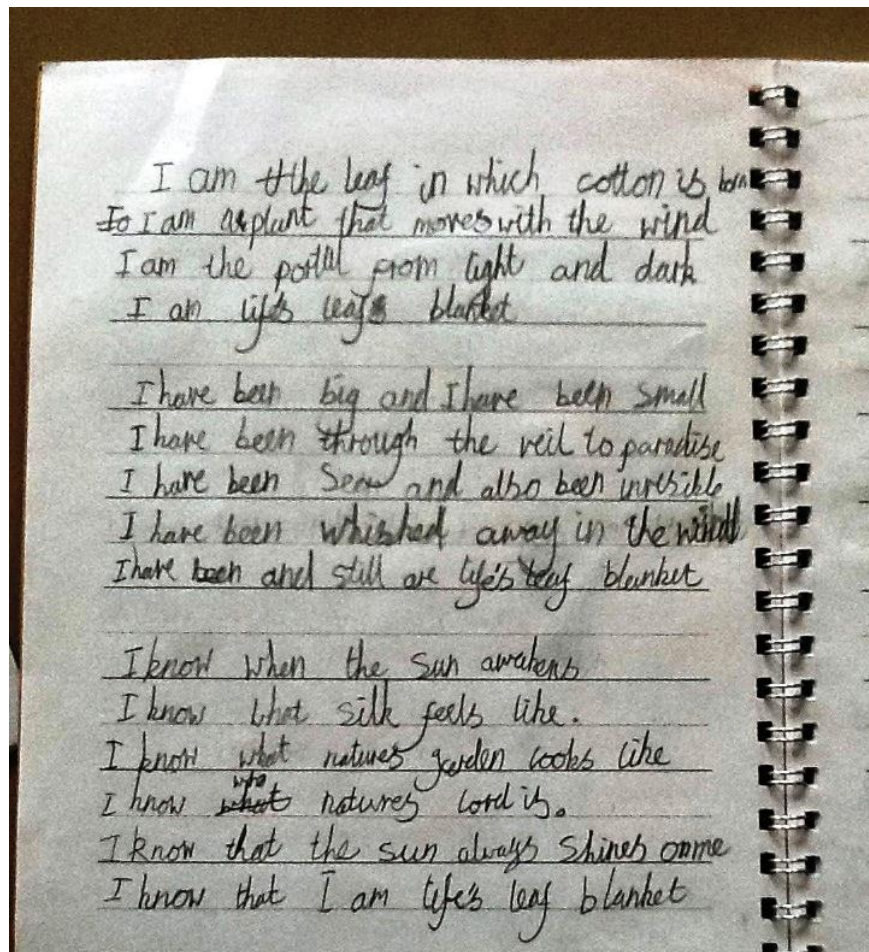 I am the leaf in which cotton is born
I am a plant that moves with the wind
I am the portal from light and dark
I am life's leaf blanket
I have been big and I have been small
I have been through the veil to paradise
I have been seen and also been invisible
I have been whished away in the wind
I have been and still are life's leaf blanket
I know when the sun awakens
I know what silk feels like.
I know what natures garden looks like
I know who natures lord is.
I know that the sun always shines on me
I know that I am life's leaf blanket